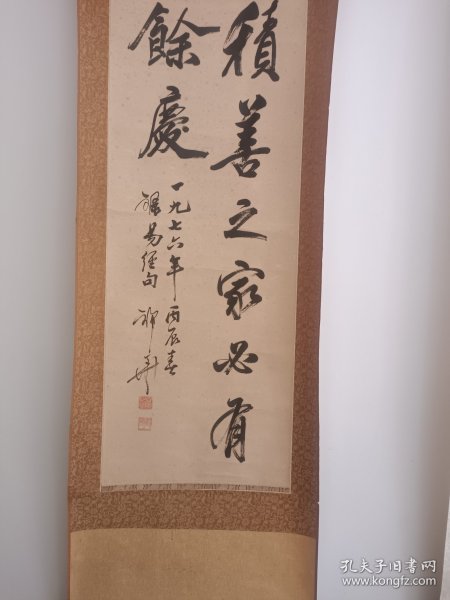 積善之家必有
餘慶
一九七六年丙辰春
錄易經句
孔夫子旧书网
www.kongfz.com